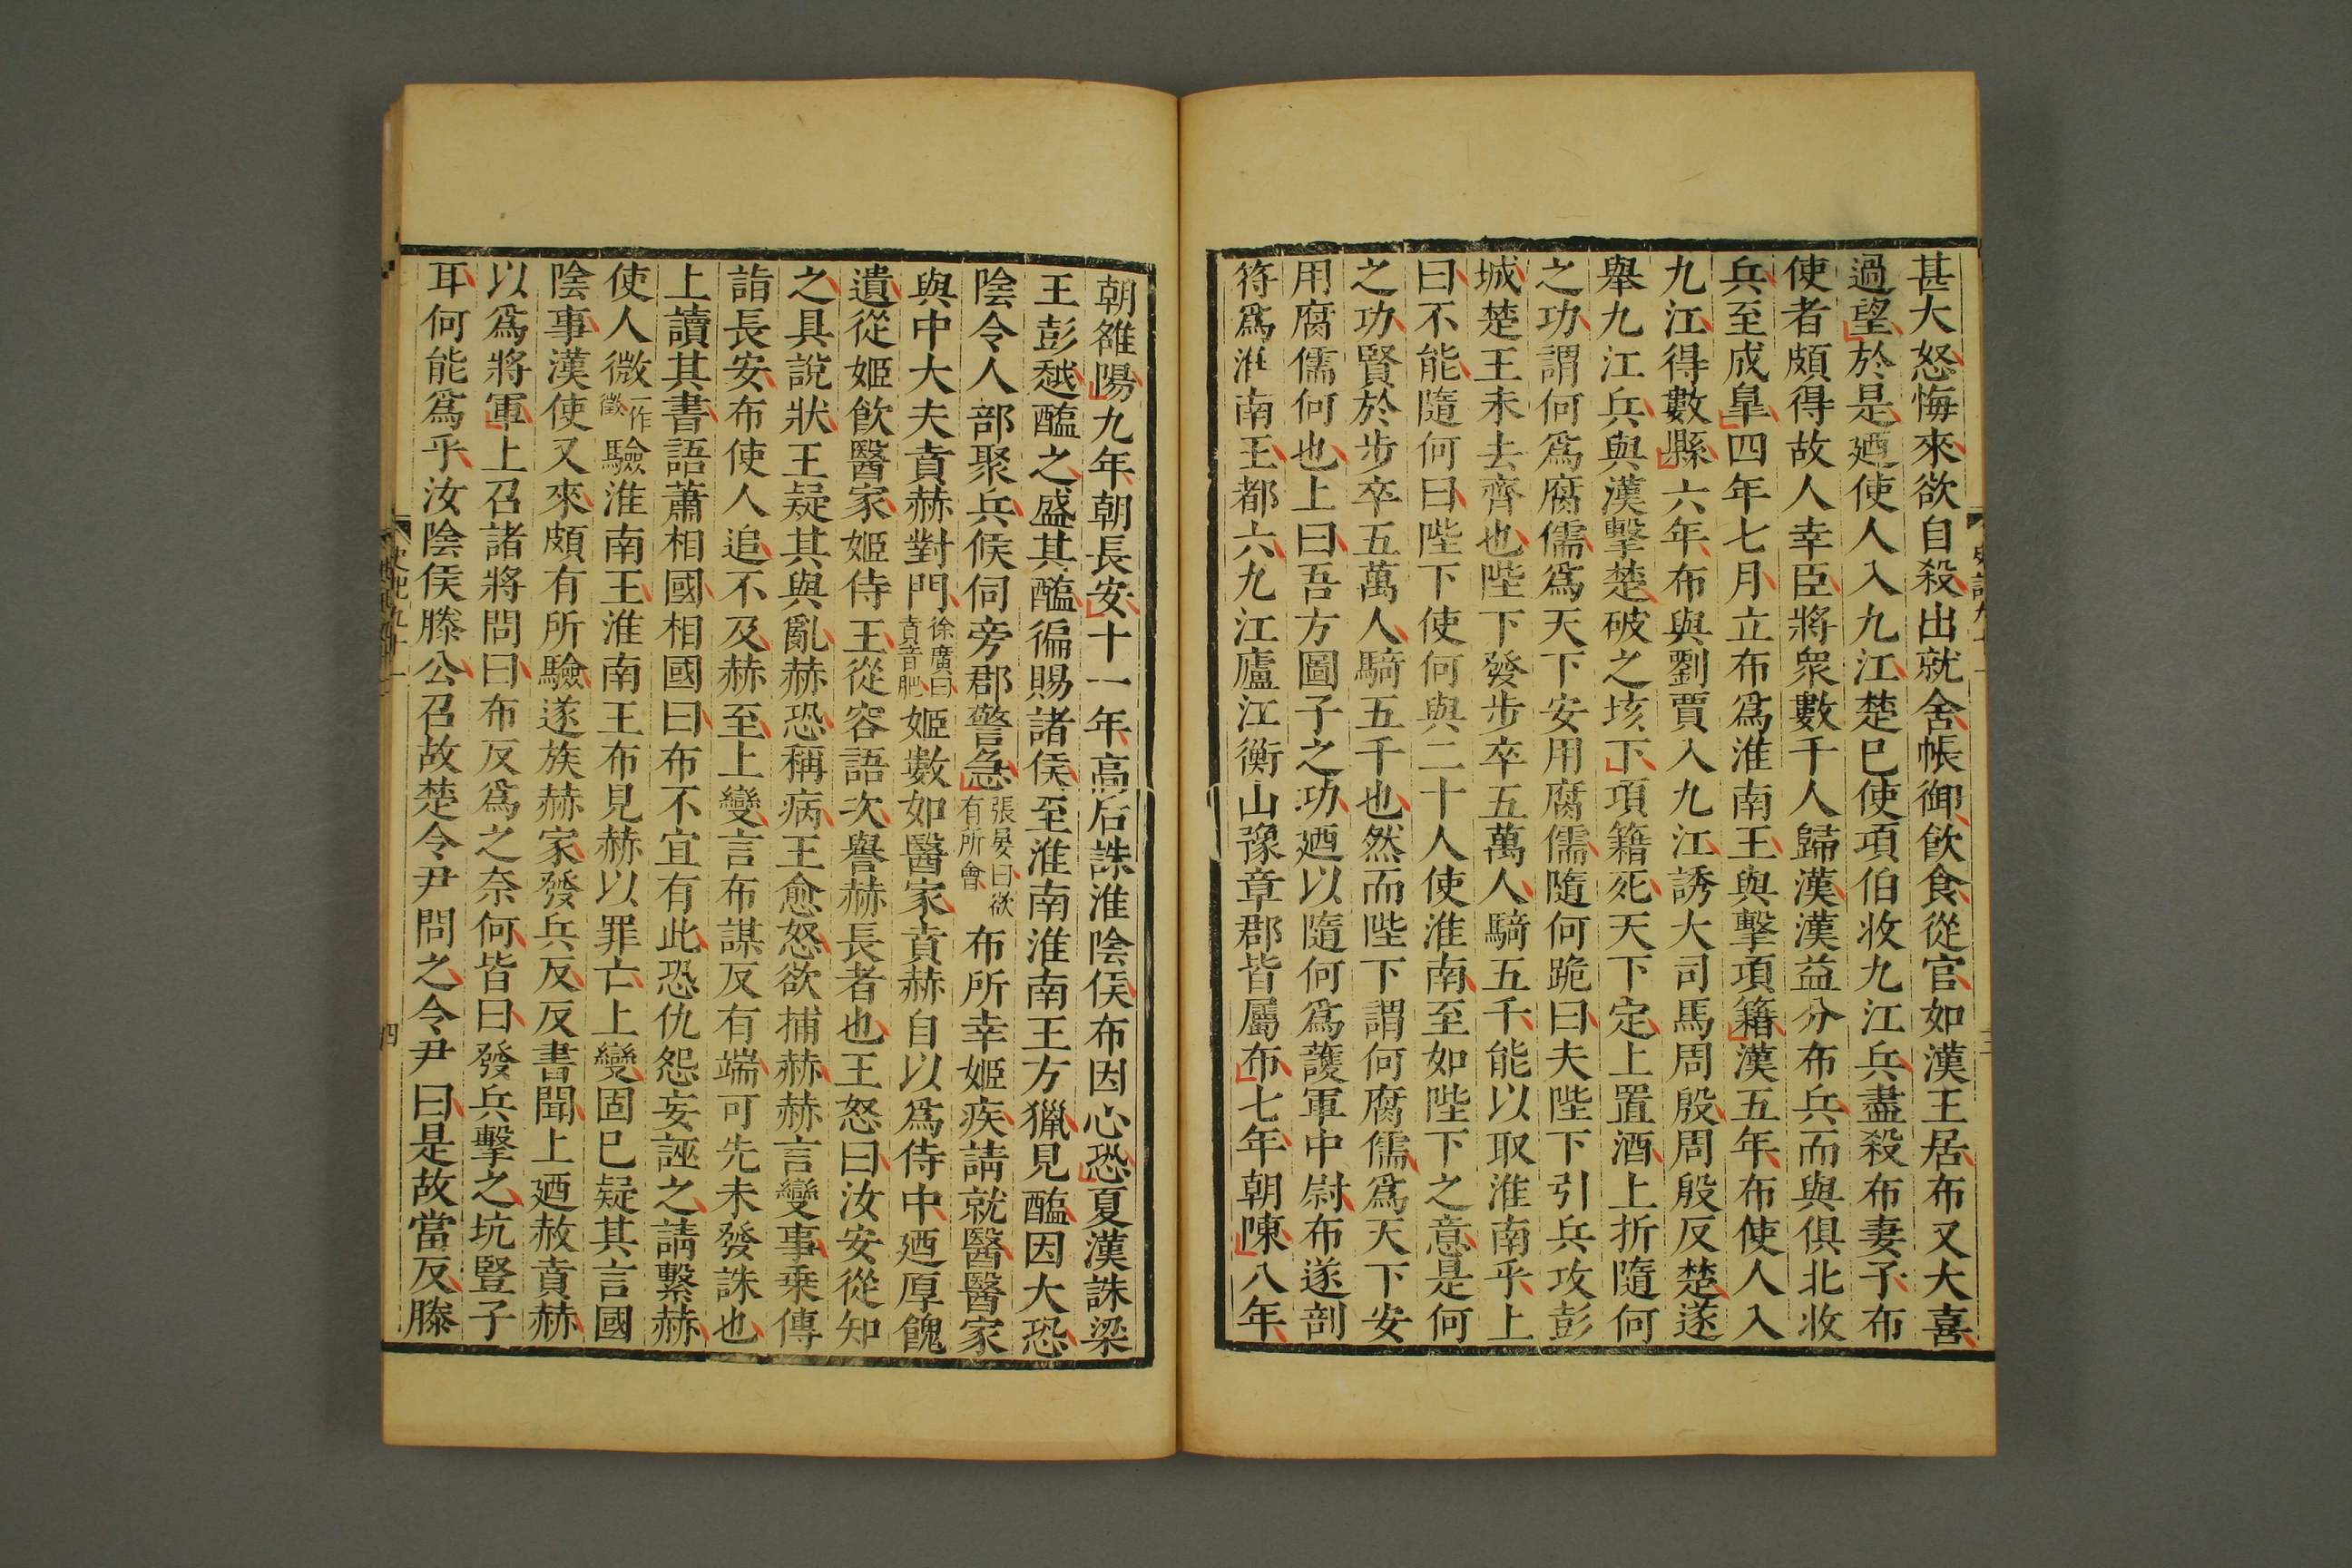 甚大怒悔來欲自殺出就舍帳御飲食從官如漢王居布又大喜
過望於是廼使人入九江楚巳使項伯收九江兵盡殺布妻子布
使者頗得故人幸臣將衆數千人歸漢漢益分布兵而與俱北收
兵至成臯四年七月立布爲淮南王與擊項籍漢五年布使人入
九江得數縣六年布與劉賈入九江誘大司馬周殷周殷反楚遂
舉九江兵與漢擊楚破之垓下項籍死天下定上置酒上折隨何
之功謂何爲腐儒爲天下安用腐儒隨何跪曰夫陛下引兵攻彭
城楚王未去齊也陛下發步卒五萬人騎五千能以取淮南乎上
曰不能隨何曰陛下使何與二十人使淮南至如陛下之意是何
之功賢於步卒五萬人騎五千也然而陛下謂何腐儒爲天下安
用腐儒何也上曰吾方圖子之功廼以隨何爲護軍中尉布遂剖
符爲淮南王都六九江廬江衡山豫章郡皆屬布七年朝陳八年
朝雒陽九年朝長安十一年高后誅淮陰侯布因心恐夏漢誅梁
王彭越醢之盛其醢徧賜諸侯至淮南淮南王方獵見醢因大恐
陰令人部聚兵候伺旁郡警急張晏曰欲有所會布所幸姬疾請就醫醫家
與中大夫賁赫對門徐廣曰賁音肥姬數如醫家賁赫自以爲侍中廼厚餽
遺從姬飲醫家姬侍王從容語次譽赫長者也王怒曰汝安從知
之具說狀王疑其與亂赫恐稱病王愈怒欲捕赫赫言變事乗傳
詣長安布使人追不及赫至上變言布謀反有端可先未發誅也
上讀其書語蕭相國相國曰布不宜有此恐仇怨妄誣之請繫赫
使人微一作徵驗淮南王淮南王布見赫以罪亡上變固巳疑其言國
陰事漢使又來頗有所驗遂族赫家發兵反反書聞上廼赦賁赫
以爲將軍上召諸將問曰布反爲之奈何皆曰發兵擊之坑豎子
耳何能爲乎汝陰侯滕公召故楚令尹問之令尹曰是故當反滕
四